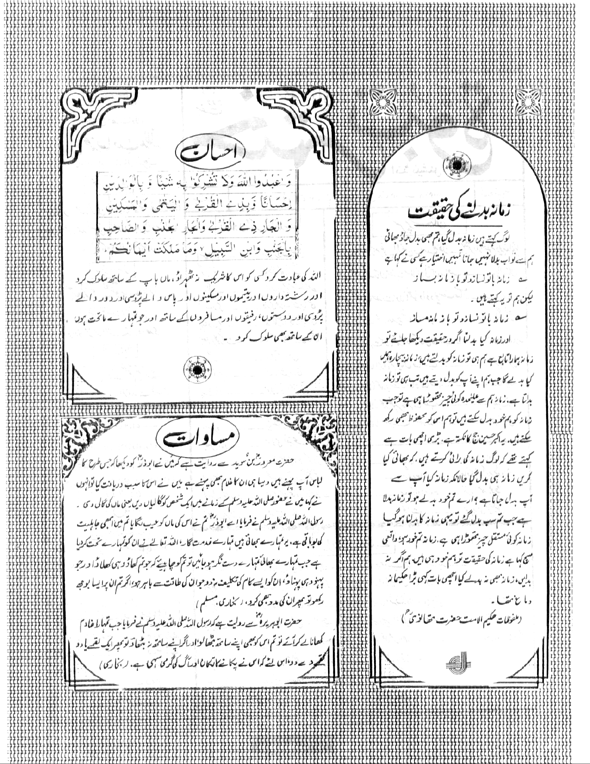 احسان
وَاعْبُدُوا اللهَ وَلَا تُشْرِكُوْا بِهٖ شَيْئًا وَّ بِالْوَالِدَيْنِ
اِحْسَانًا وَّ بِذِي الْقُرْبٰى وَ الْيَتٰمٰى وَ الْمَسٰكِيْنِ
وَ الْجَارِ ذِي الْقُرْبٰى وَ الْجَارِ الْجُنُبِ وَ الصَّاحِبِ
بِالْجَنْبِ وَ ابْنِ السَّبِيْلِ وَمَا مَلَكَتْ اَيْمَانُكُمْ
اللہ کی عبادت کرو کسی کو اس کا شریک نہ ٹھہراؤ، ماں باپ کے ساتھ سلوک کرو
اور رشتہ داروں اور یتیموں اور مسکینوں اور پاس والے پڑوسی اور دور والے
پڑوسی اور دوستوں، رفیقوں اور مسافروں کے ساتھ اور جو تمہارے ماتحت ہوں
ان کے ساتھ بھی سلوک کرو ۔
مساوات
حضرت معرور بن سوید سے روایت ہے کہ میں نے ابوذرؓ کو دیکھا کہ جس طرح کا
لباس آپ پہنے ہیں ویسا ہی ان کا غلام بھی پہنے ہے میں نے اس کا سبب دریافت کیا تو انہوں
نے کہا میں نے حضور صلی اللہ علیہ وسلم کے زمانے میں ایک شخص کو گالیاں دیں یعنی ماں کی گالی دی ۔
رسول اللہ صلی اللہ علیہ وسلم نے فرمایا اے ابوذرؓ تم نے اس کی ماں کو عیب لگایا تم میں ابھی جاہلیت
کی بو باقی ہے، یہ تمہارے بھائی ہیں تمہارے خدمت گار، اللہ تعالیٰ نے ان کو تمہارے تحت کر دیا
ہے جب تمہارے بھائی تمہارے دست نگر ہو جائیں تو تم کو چاہیے کہ جو تم کھاؤ وہی کھلاؤ اور جو
پہنو وہی پہناؤ، ان کو ایسے کام کی تکلیف نہ دو جو ان کی طاقت سے باہر ہو، اگر تم ان پر ایسا بوجھ
رکھو تو پھر ان کی مدد بھی کرو ۔ (بخاری، مسلم)
حضرت ابوہریرہؓ سے روایت ہے کہ رسول اللہ صلی اللہ علیہ وسلم نے فرمایا جب تمہارا خادم
کھانا لے کر آئے تو تم اس کو بھی اپنے ساتھ بٹھا لو، اگر اپنے ساتھ نہ بٹھاؤ تو پھر ایک لقمہ یا دو
لقمہ دے دو، اس لئے کہ اس نے پکانے کا تکان اور آگ کی گرمی سہی ہے ۔ (بخاری)
زمانہ بدلنے کی حقیقت
لوگ کہتے ہیں زمانہ بدل گیا، تم بھی بدل جاؤ بھائی
ہم سے تو اب بدلا نہیں جاتا تمہیں اختیار ہے کسی نے کہا ہے
زمانہ با تو نسازد تو با زمانہ بساز
لیکن ہم تو یہ کہتے ہیں ۔
زمانہ با تو نسازد تو با زمانہ مساز
اور زمانہ کیا بدلتا اگر در حقیقت دیکھا جائے تو
زمانہ ہمارا تابع ہے ہم ہی تو زمانہ کو بدلتے ہیں، زمانہ بیچارہ ہمیں
کیا بدلے گا جب ہم اپنے آپ کو بدل دیتے ہیں تب ہی تو زمانہ
بدلتا ہے، زمانہ ہم سے علیحدہ کوئی چیز تھوڑا ہی ہے تو جب
زمانہ کو ہم خود بدل سکتے ہیں تو ہم اس کو محفوظ بھی رکھ
سکتے ہیں، یہ اکبر حسین جج کا نکتہ ہے، بڑی اچھی بات ہے
کہتے تھے کہ لوگ زمانہ کی برائی کرتے ہیں، کہ بھائی کیا
کریں زمانہ ہی بدل گیا حالانکہ زمانہ کیا آپ سے
آپ بدل جاتا ہے؟ ارے تم خود بدلے ہو تو زمانہ بدلا
ہے جب تم سب بدل گئے تو یہی زمانہ کا بدلنا ہو گیا
زمانہ کوئی مستقل چیز تھوڑا ہی ہے ۔ زمانہ تم خود ہو، واقعی
صحیح کہا ہے زمانہ کی حقیقت تو ہم خود ہی ہیں، ہم اگر نہ
بدلیں، زمانہ بھی نہ بدلے کیا اچھی بات کہی بڑا حکیمانہ
دماغ تھا ۔
(ملفوظات حکیم الامت حضرت تھانویؒ)